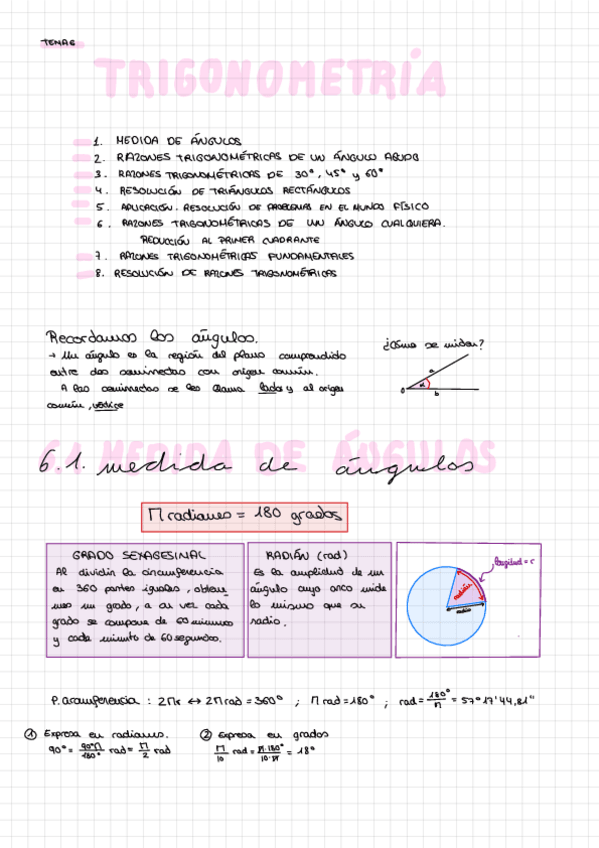 TEMA 6
TRIGONOMETRÍA
1. MEDIDA DE ÁNGULOS
2. RAZONES TRIGONOMÉTRICAS DE UN ÁNGULO AGUDO
3. RAZONES TRIGONOMÉTRICAS DE 30°, 45° y 60°
4. RESOLUCIÓN DE TRIÁNGULOS RECTÁNGULOS
5. APLICACIÓN. RESOLUCIÓN DE PROBLEMAS EN EL MUNDO FÍSICO
6. RAZONES TRIGONOMÉTRICAS DE UN ÁNGULO CUALQUIERA.
REDUCCIÓN AL PRIMER CUADRANTE
7. RAZONES TRIGONOMÉTRICAS FUNDAMENTALES
8. RESOLUCIÓN DE RAZONES TRIGONOMÉTRICAS
Recordamos los ángulos.
→ Un ángulo es la región del plano comprendido
entre dos semirrectas con origen común.
A las semirrectas se les llama lados y al origen
común, vértice
¿Cómo se miden?
a
α
0
b
6.1 MEDIDA DE ÁNGULOS
6.1. medida de ángulos
Π radianes = 180 grados
GRADO SEXAGESINAL
Al dividir la circunferencia
en 360 partes iguales, obtene_
mos un grado, a su vez cada
grado se compone de 60 minutos
y cada minuto de 60 segundos.
RADIÁN (rad)
Es la amplitud de un
ángulo cuyo arco mide
lo mismo que su
radio.
longitud = r
radián
radio
P. circunferencia : 2Πr ↔ 2Π rad = 360° ; Π rad = 180° ; rad = 180°/Π = 57°17'44,81"
① Expresa en radianes.
90° = 90°Π/180° rad = Π/2 rad
② Expresa en grados
Π/10 rad = Π·180°/10·Π = 18°